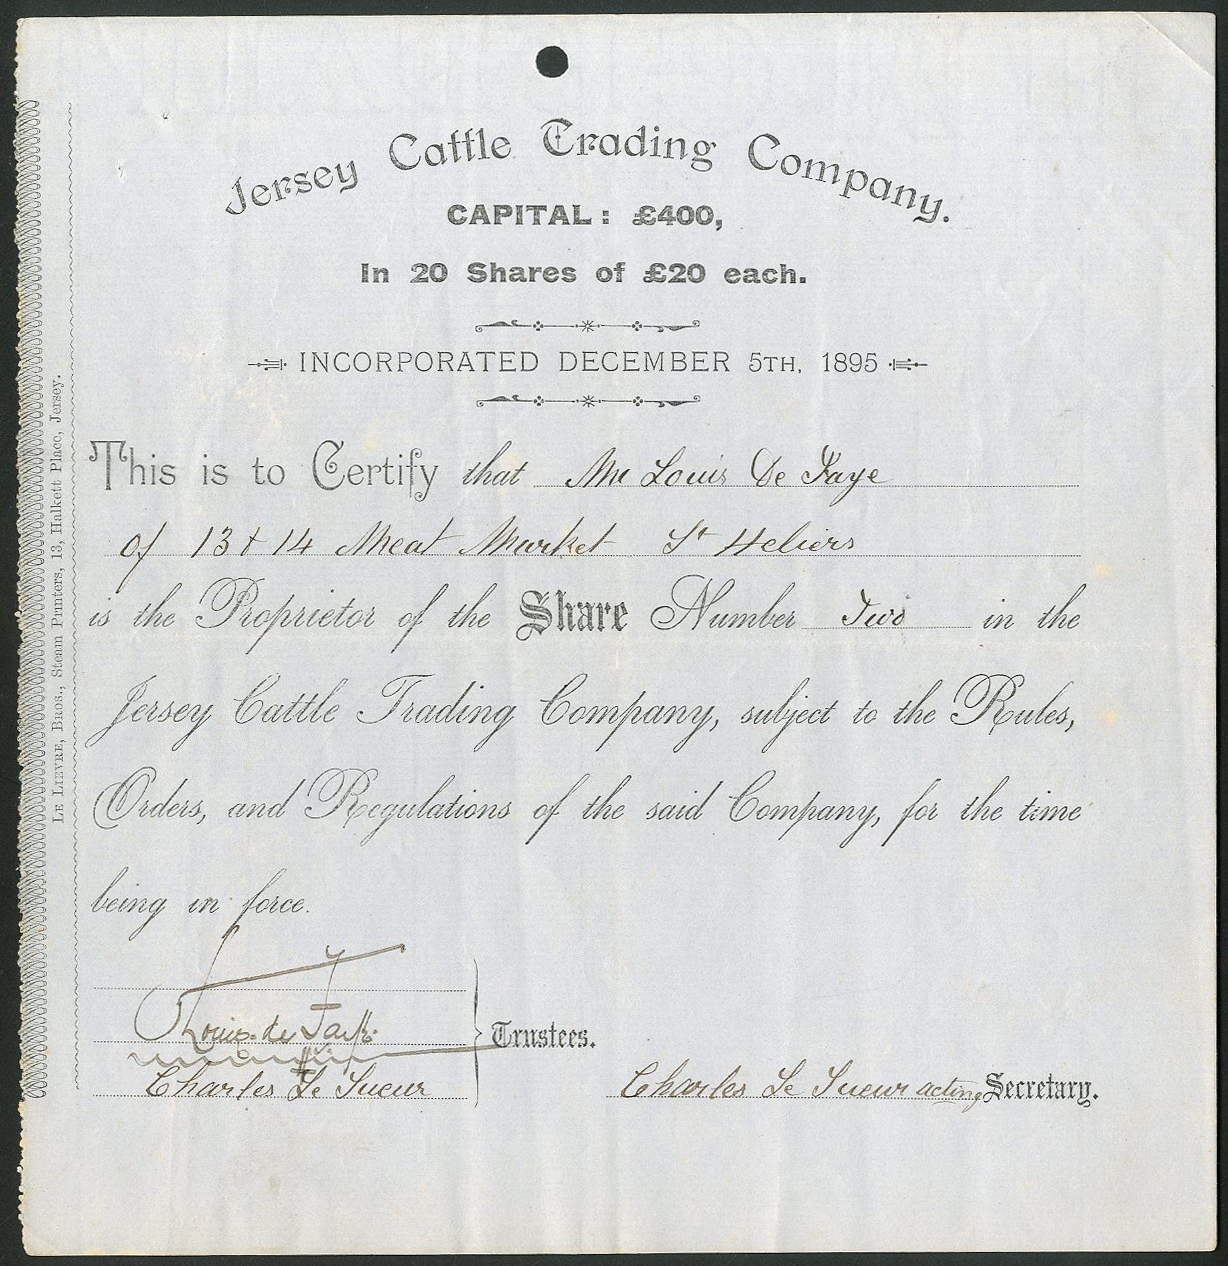 Jersey Cattle Trading Company.
CAPITAL: £400,
In 20 Shares of £20 each.
INCORPORATED DECEMBER 5TH, 1895
This is to Certify that Mr Louis De Faye
of 13 & 14 Meat Market St Heliers
is the Proprietor of the Share Number Two in the
Jersey Cattle Trading Company, subject to the Rules,
Orders, and Regulations of the said Company, for the time
being in force.
Louis de Faye
Trustees.
Charles Le Sueur
Charles Le Sueur acting Secretary.
LE LIEVRE, BROS., Steam Printers, 13, Halkett Place, Jersey.